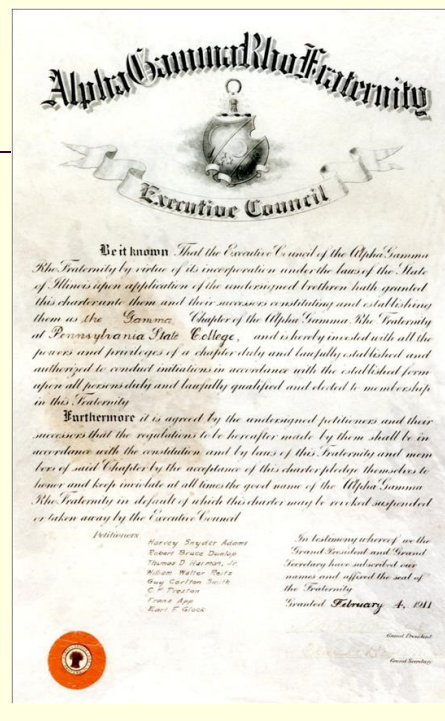 Alpha Gamma Rho Fraternity
Executive Council
Be it known That the Executive Council of the Alpha Gamma
Rho Fraternity by virtue of its incorporation under the laws of the State
of Illinois upon application of the undersigned brethren hath granted
this charter unto them and their successors constituting and establishing
them as the Gamma Chapter of the Alpha Gamma Rho Fraternity
at Pennsylvania State College, and is hereby invested with all the
powers and privileges of a chapter duly and lawfully established and
authorized to conduct initiations in accordance with the established form
upon all persons duly and lawfully qualified and elected to membership
in this Fraternity
Furthermore it is agreed by the undersigned petitioners and their
successors that the regulations to be hereafter made by them shall be in
accordance with the constitution and by laws of this Fraternity and mem
bers of said Chapter by the acceptance of this charter pledge themselves to
honor and keep inviolate at all times the good name of the Alpha Gamma
Rho Fraternity in default of which this charter may be revoked suspended
or taken away by the Executive Council
Petitioners
Harvey Snyder Adams
Robert Bruce Dunlap
Thomas D Harman, Jr
William Walter Reitz
Guy Carlton Smith
C P Preston
Franz App
Karl F Glock
In testimony whereof we the
Grand President and Grand
Secretary have subscribed our
names and affixed the seal of
the Fraternity
Granted February 4, 1911
Grand President
Grand Secretary